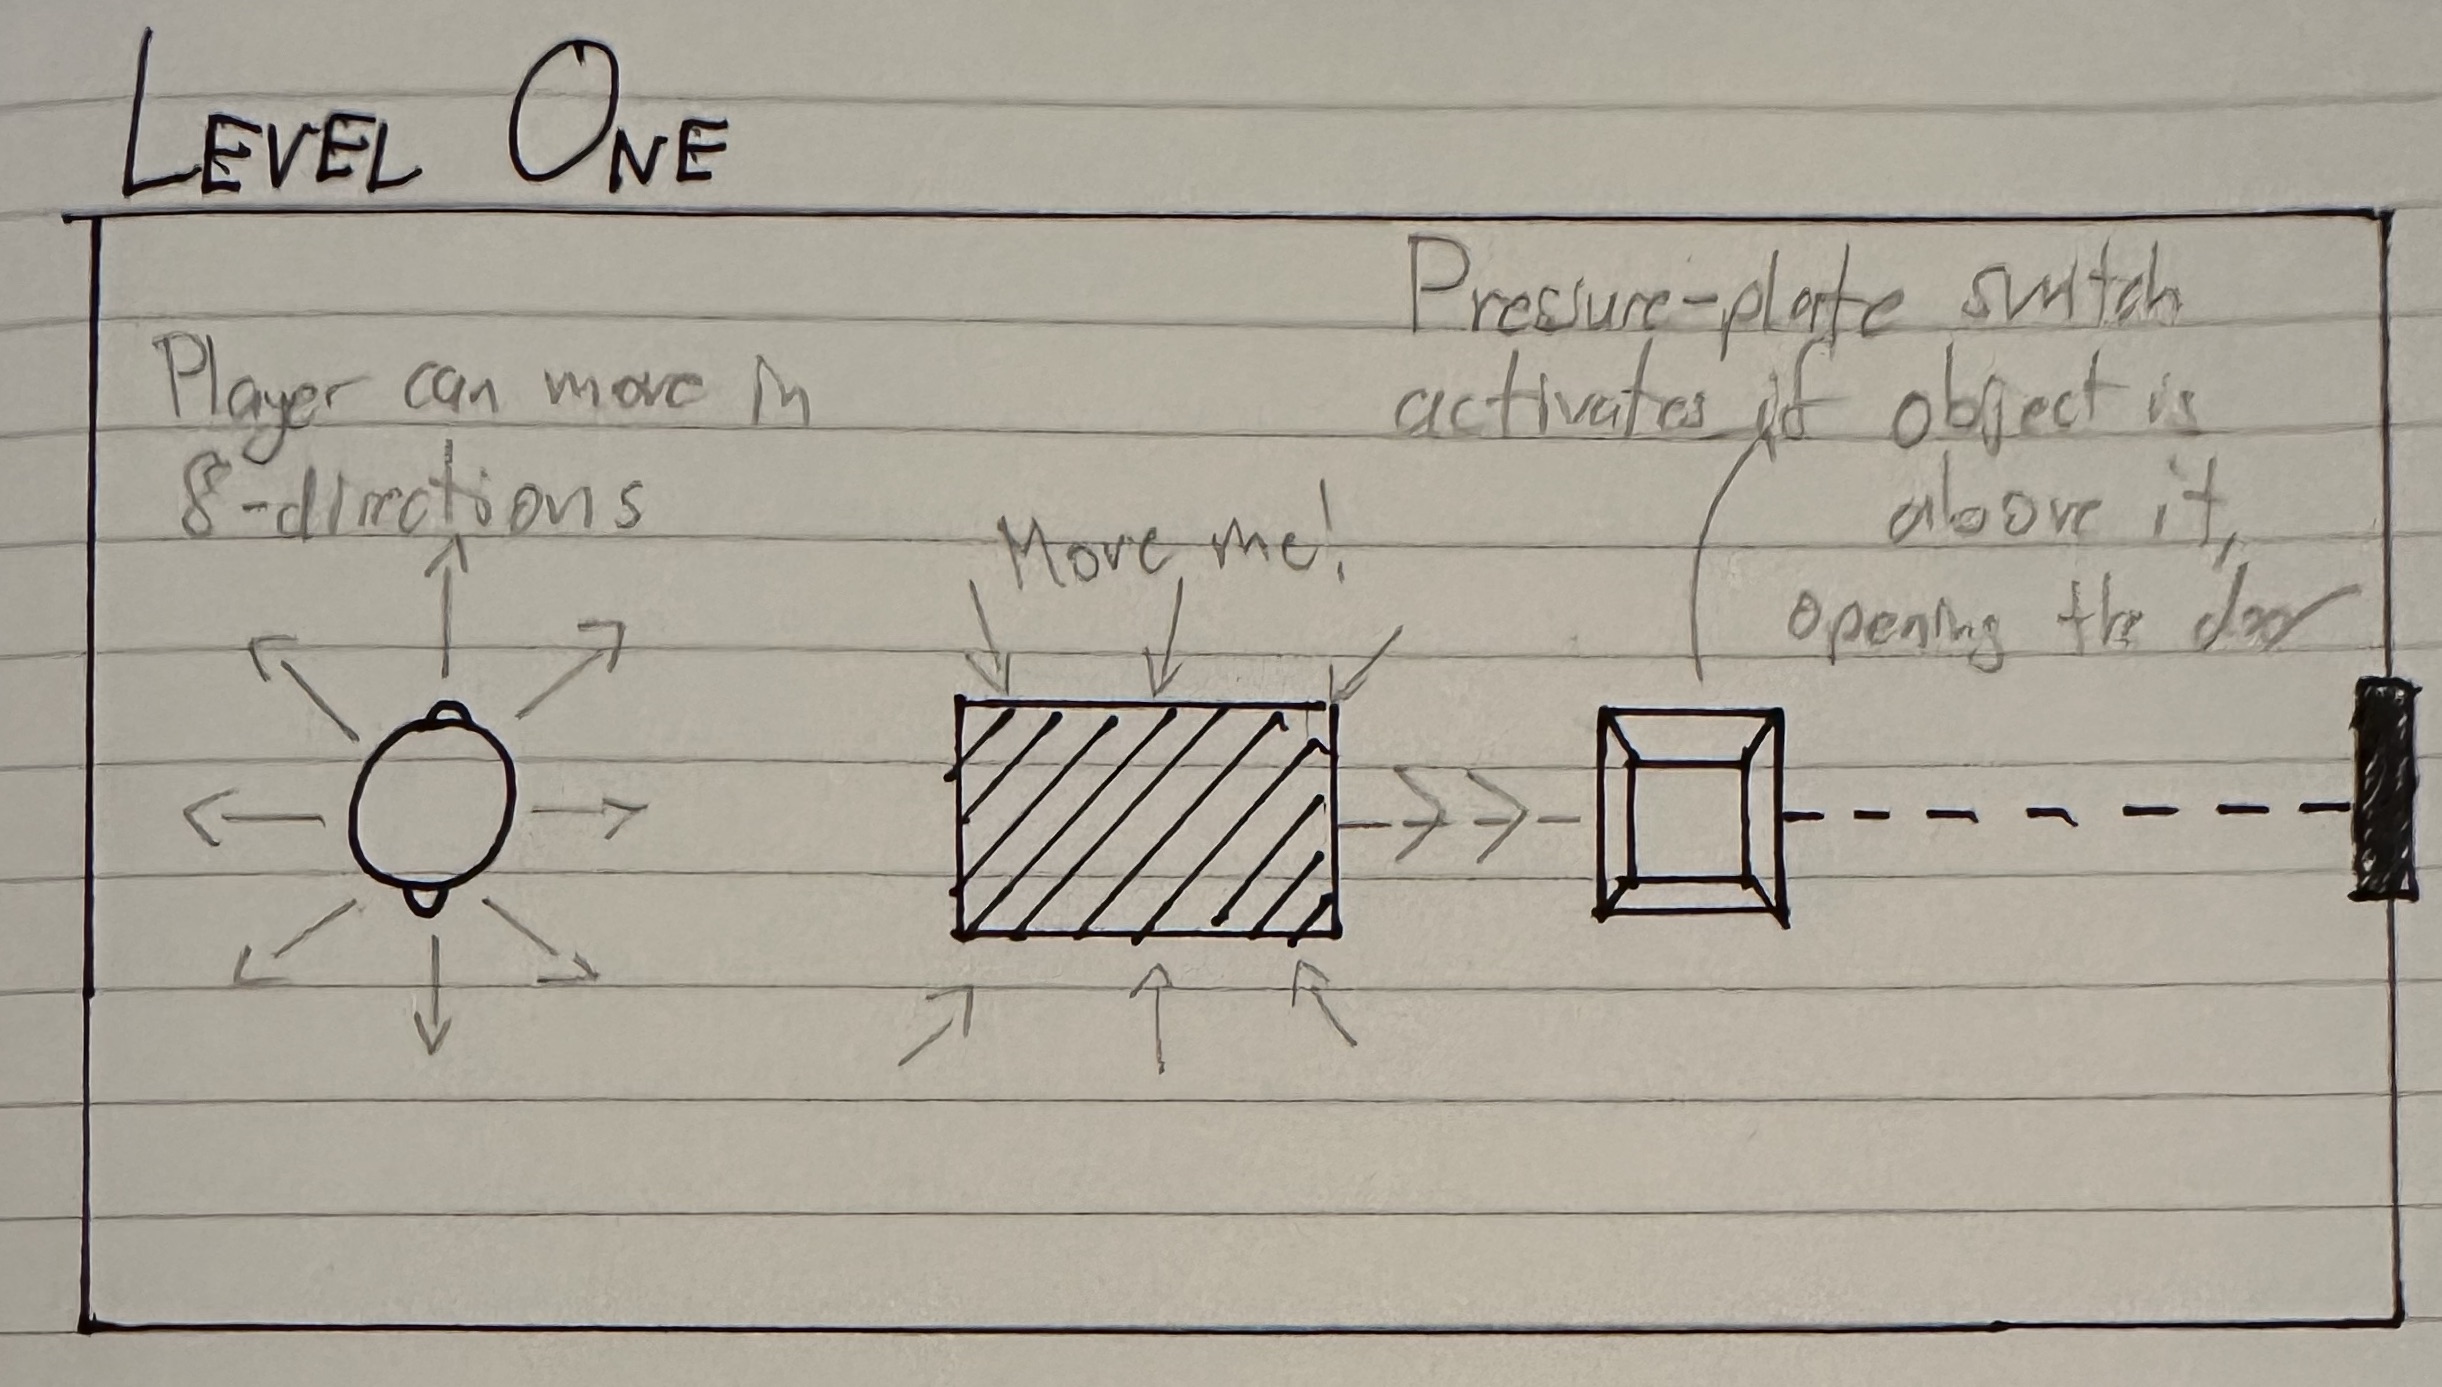 LEVEL ONE
Player can move in
8-directions
Move me!
Pressure-plate switch
activates if object is
above it,
opening the door